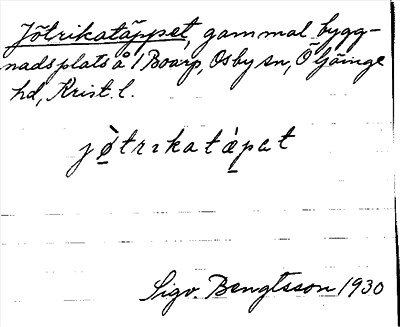 Jötrikatäppet, gammal bygg-
nadsplats å 1 Boarp, Osby sn, Ö Göinge
hd, Krist. l.
jø̀trıkatǽpat
Sigv. Bengtsson 1930